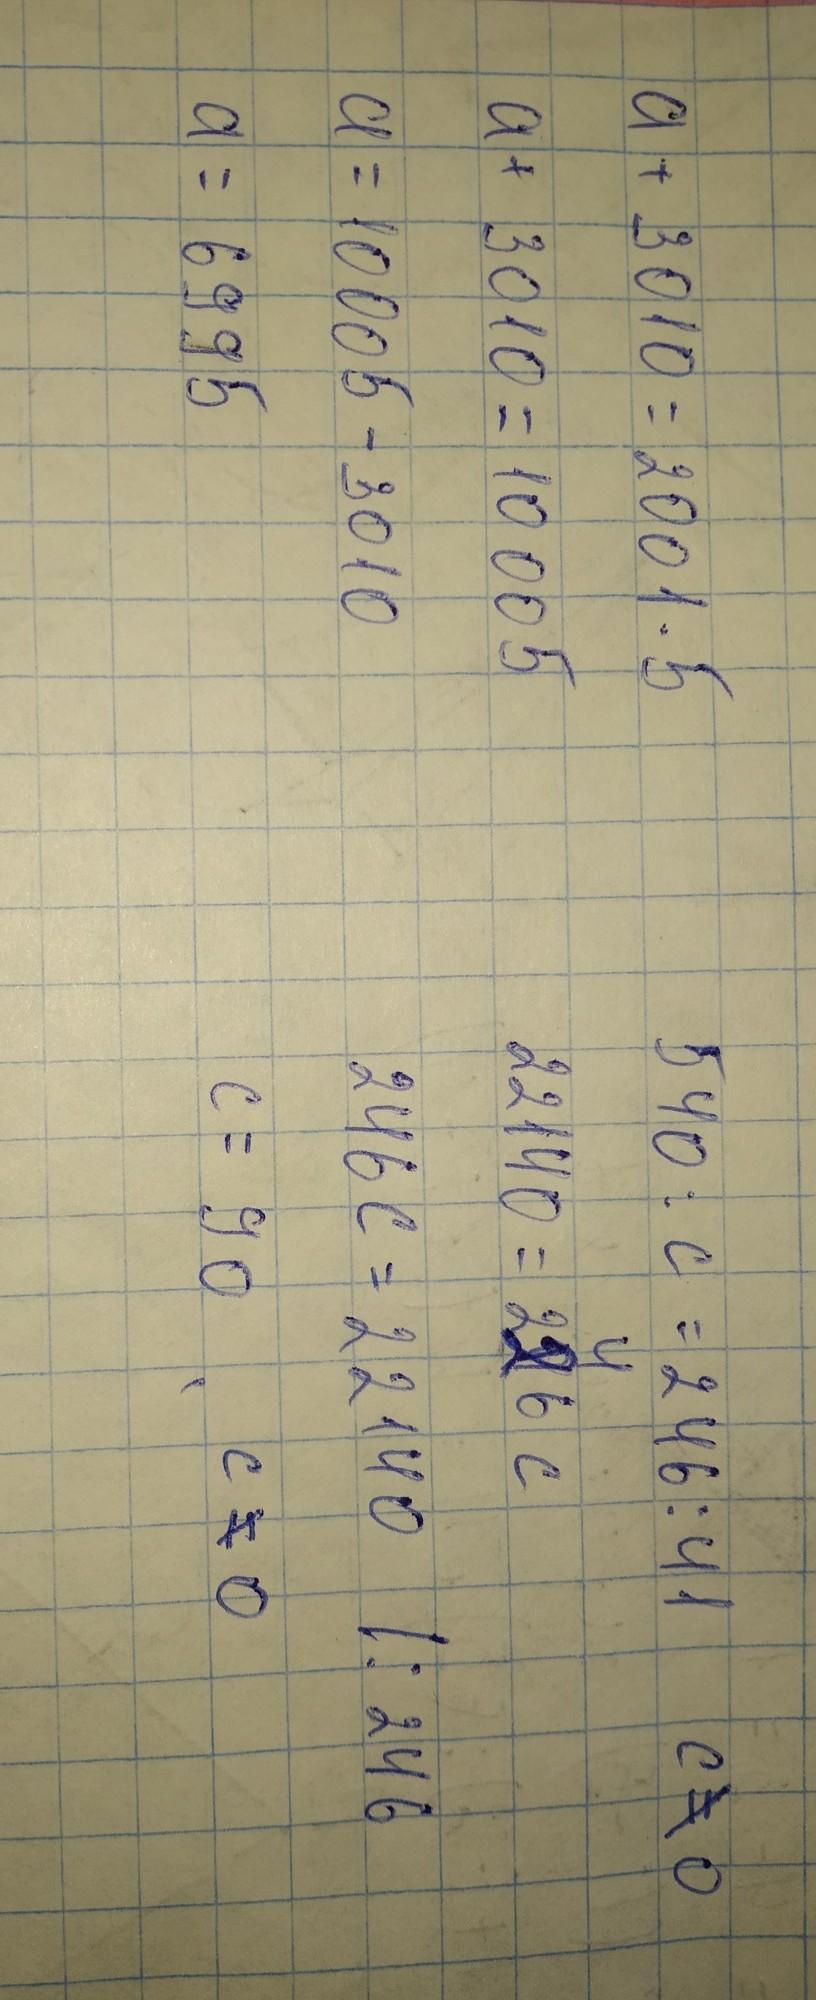 a + 3010 = 2001 · 5
a + 3010 = 10005
a = 10005 - 3010
a = 6995
540 : c = 246 : 41 c ≠ 0
22140 = 246 c
246 c = 22140 | : 246
c = 90 , c ≠ 0